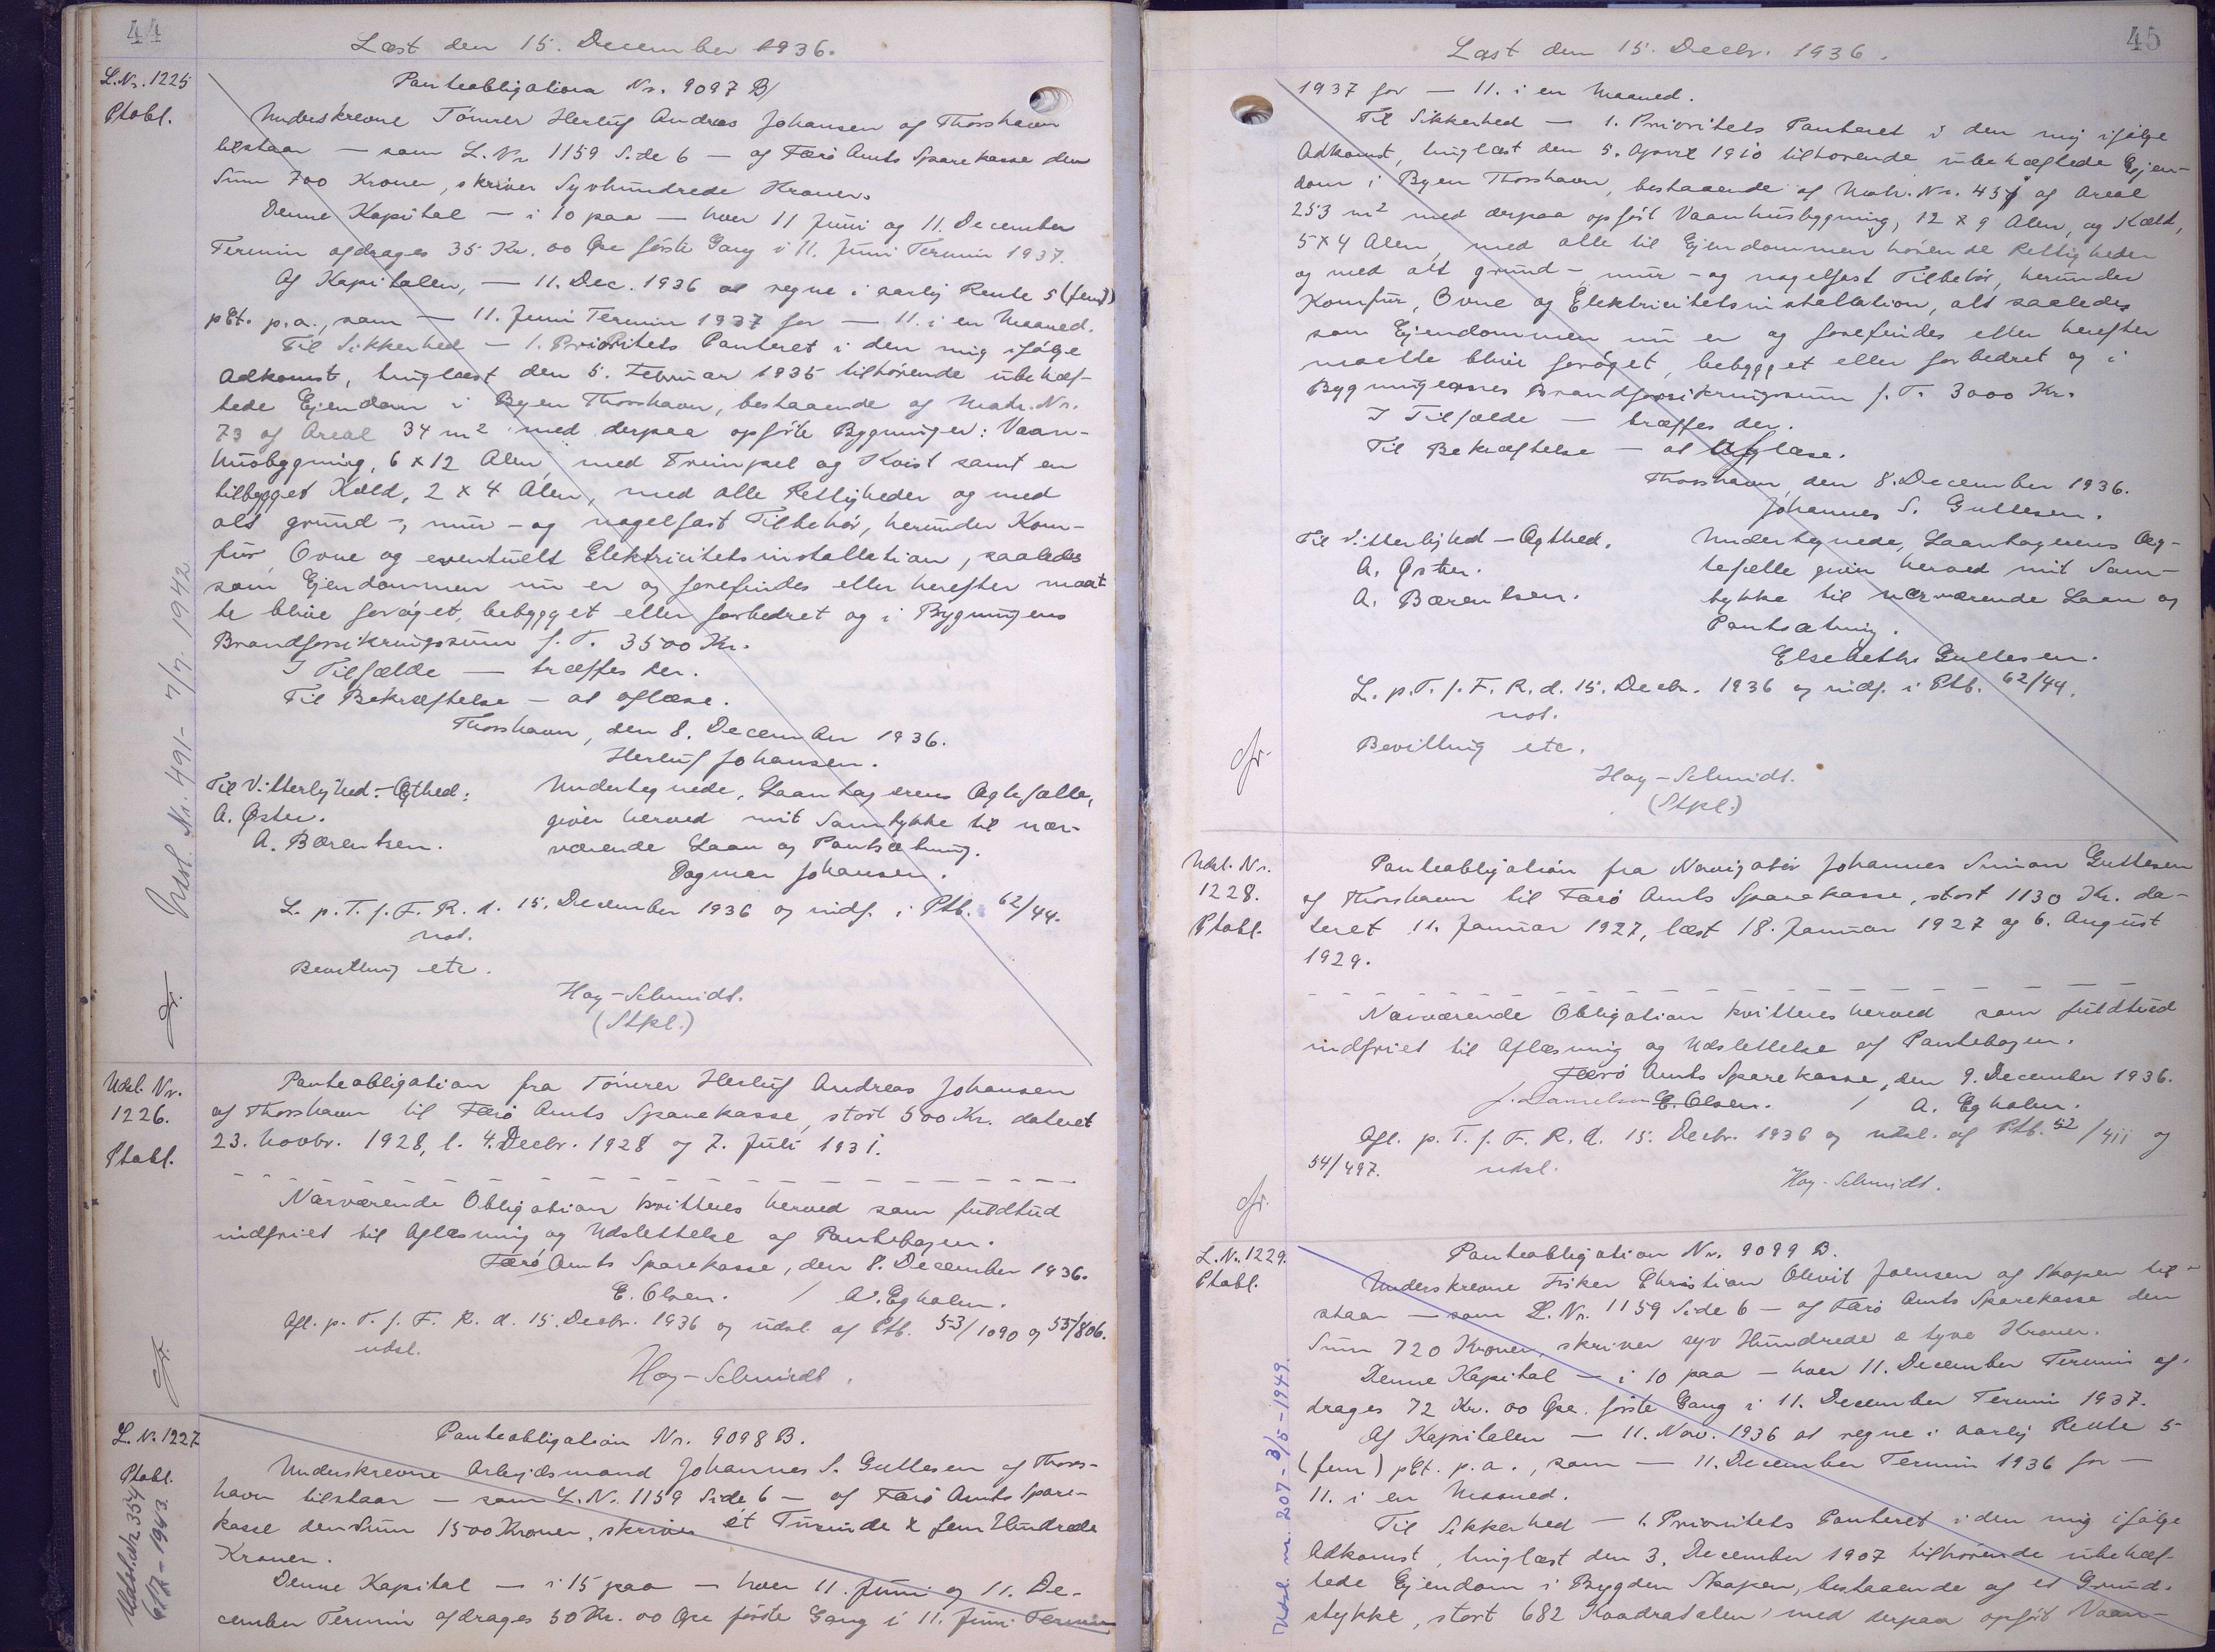 44
Læst den 15. December 1936.
L.Nr. 1225
Ptobl.
Panteobligation Nr. 9097 B/
Underskrevne Tömrer Herluf Andreas Johansen af Thorshavn
tilstaar — som L.Nr 1159 Side 6 — af Færö Amts Sparekasse den
Sum 700 Kroner, skriver Syvhundrede Kroner.
Denne Kapital — i 10 paa — hver 11 Juni og 11. December
Termin afdrages 35 Kr. 00 Øre förste Gang i 11. Juni Termin 1937.
Af Kapitalen, — 11. Dec. 1936 at regne i aarlig Rente 5 (fem)
pCt. p.a., som — 11. Juni Termin 1937 for — 11. i en Maaned.
Til Sikkerhed — 1. Prioritets Panteret i den mig ifölge
Adkomst, tinglæst den 5. Februar 1935 tilhörende ubehæf-
tede Ejendom i Byen Thorshavn, bestaaende af Matr. Nr.
73 af Areal 34 m² med derpaa opförte Bygninger: Vaan-
husbygning, 6 x 12 Alen, med Trempel og Kvist samt en
tilbygget Kæld, 2 x 4 Alen, med alle Rettigheder og med
alt grund-, mur- og nagelfast Tilbehör, herunder Kom-
fur, Ovne og eventuelt Elektricitetsinstallation, saaledes
som Ejendommen nu er og forefindes eller herefter maat
te blive foröget, bebygget eller forbedret og i Bygningens
Brandforsikringssum f. T. 3500 Kr.
I Tilfælde — træffes der.
Til Bekræftelse — at aflæse.
Thorshavn, den 8. December 1936.
Herluf Johansen.
Til Vitterlighed - Ægthed:
A. Øster.
A. Bærentsen.
Undertegnede, Laantagerens Ægtefælle,
giver herved mit Samtykke til nær-
værende Laan og Pantsætning.
Dagmar Johansen.
L. p. T. f. F. R. d. 15. December 1936 og indf. i Ptb. 62/44.
not.
Bevilling etc.
Hoy-Schmidt.
(Stpl.)
Udsl. Nr. 491 - 7/7. 1942
Udsl. Nr.
1226.
Ptobl.
Panteobligation fra Tömrer Herluf Andreas Johansen
af Thorshavn til Færö Amts Sparekasse, stort 500 Kr. dateret
23. Novbr. 1928, l. 4. Decbr. 1928 og 7. Juli 1931.
Nærværende Obligation kvitteres herved som fuldtud
indfriet til Aflæsning og Udslettelse af Pantebogen.
Færö Amts Sparekasse, den 8. December 1936.
E. Olsen. / A. Egholm.
Afl. p. T. f. F. R. d. 15. Decbr. 1936 og udsl. af Ptb. 53/1090 og 55/806.
udsl.
Hoy-Schmidt.
L. Nr. 1227
Ptobl.
Udsl. Nr. 354
6/7 - 1943.
Panteobligation Nr. 9098 B.
Underskrevne Arbejdsmand Johannes S. Guttesen af Thors-
havn tilstaar — som L.Nr. 1159 Side 6 — af Færö Amts Spare-
kasse den Sum 1500 Kroner, skriver et Tusinde & fem Hundrede
Kroner.
Denne Kapital — i 15 paa — hver 11. Juni og 11. De-
cember Termin afdrages 50 Kr. 00 Øre förste Gang i 11. Juni Termin
45
Læst den 15. Decbr. 1936.
1937 for — 11. i en Maaned.
Til Sikkerhed — 1. Prioritets Panteret i den mig ifölge
Adkomst, tinglæst den 5. April 1910 tilhörende ubehæftede Ejen-
dom i Byen Thorshavn, bestaaende af Matr. Nr. af Areal
253 m² med derpaa opfört Vaanhusbygning, 12 x 9 Alen, og Kæld,
5 x 4 Alen, med alle til Ejendommen hörende Rettigheder
og med alt grund-, mur- og nagelfast Tilbehör, herunder
Komfur, Ovne og Elektricitetsinstallation, alt saaledes
som Ejendommen nu er og forefindes eller herefter
maatte blive foröget, bebygget eller forbedret og i
Bygningernes Brandforsikringssum f. T. 3000 Kr.
I Tilfælde — træffes der.
Til Bekræftelse — at aflæse.
Thorshavn, den 8. December 1936.
Johannes S. Guttesen.
Til Vitterlighed - Ægthed.
A. Øster.
A. Bærentsen.
Undertegnede, Laantagerens Æg-
tefælle giver herved mit Sam-
tykke til nærværende Laan og
Pantsætning.
Elsebeth Guttesen.
L. p. T. f. F. R. d. 15. Decbr. 1936 og indf. i Ptb. 62/44.
not.
Bevilling etc.
Hoy-Schmidt.
(Stpl.)
Udsl. Nr.
1228.
Ptobl.
Panteobligation fra Navigatör Johannes Simon Guttesen
af Thorshavn til Færö Amts Sparekasse, stort 1130 Kr. da-
teret 11. Januar 1927, læst 18. Januar 1927 og 6. August
1929.
Nærværende Obligation kvitteres herved som fuldtud
indfriet til Aflæsning og Udslettelse af Pantebogen.
Færö Amts Sparekasse, den 9. December 1936.
E. Olsen. / A. Egholm.
Afl. p. T. f. F. R. d. 15. Decbr. 1936 og udsl. af Ptb. 52/411 og
54/497.
udsl.
Hoy-Schmidt.
L. Nr. 1229.
Ptobl.
Udsl. nr. 207 - 3/5 - 1949.
Panteobligation Nr. 9099 B.
Underskrevne Fisker Christian Olevit Joensen af Skopen til-
staar — som L.Nr. 1159 Side 6 — af Færö Amts Sparekasse den
Sum 720 Kroner, skriver syv Hundrede & tyve Kroner.
Denne Kapital — i 10 paa — hver 11. December Termin af-
drages 72 Kr. 00 Øre. förste Gang i 11. December Termin 1937.
Af Kapitalen — 11. Nov. 1936 at regne i aarlig Rente 5
(fem) pCt. p.a., som — 11. December Termin 1936 for —
11. i en Maaned.
Til Sikkerhed — 1. Prioritets Panteret i den mig ifölge
Adkomst, tinglæst den 3. December 1907 tilhörende ubehæf-
tede Ejendom i Bygden Skopen, bestaaende af et Grund-
stykke, stort 682 Kvadratalen, med derpaa opfört Vaan-